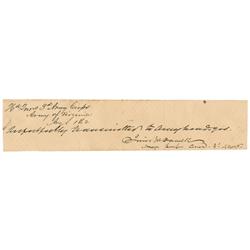 Hd Qrs 3d Army Corps
Army of Virginia
Respectfully transmitted to Army headqrs.
Irvin McDowell
Maj Genl Comd 3d Corps